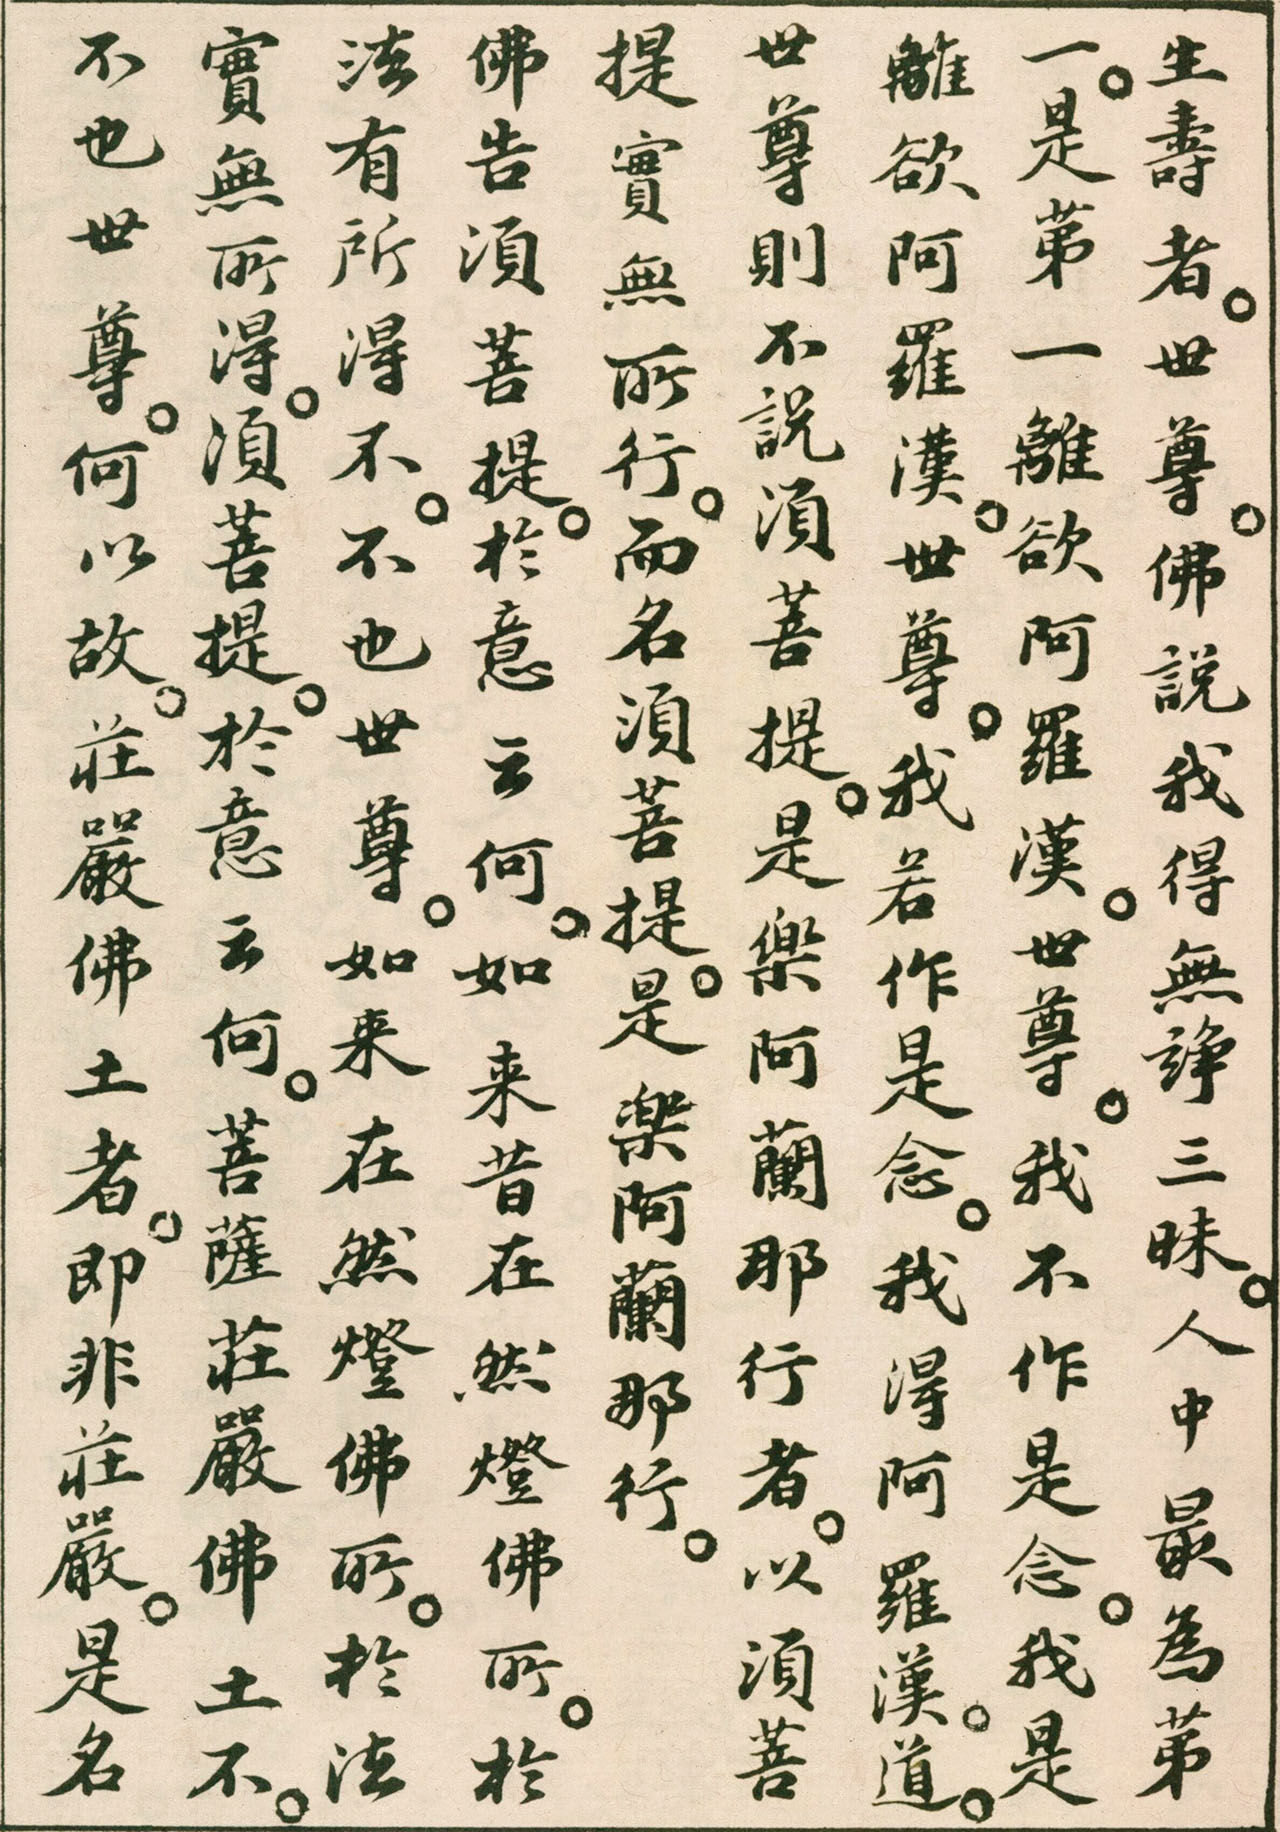 生壽者。世尊。佛説我得無諍三昧。人中最為第
一。是第一離欲阿羅漢。世尊。我不作是念。我是
離欲阿羅漢。世尊。我若作是念。我得阿羅漢。道。
世尊則不説須菩提。是樂阿蘭那行者。以須菩
提實無所行。而名須菩提。是樂阿蘭那行。
佛告須菩提。於意云何。如来昔在然燈佛所。於
法有所得不。不也世尊。如来在然燈佛所。於法
實無所得。須菩提。於意云何。菩薩莊嚴佛土不。
不也世尊。何以故。莊嚴佛土者。即非莊嚴。是名